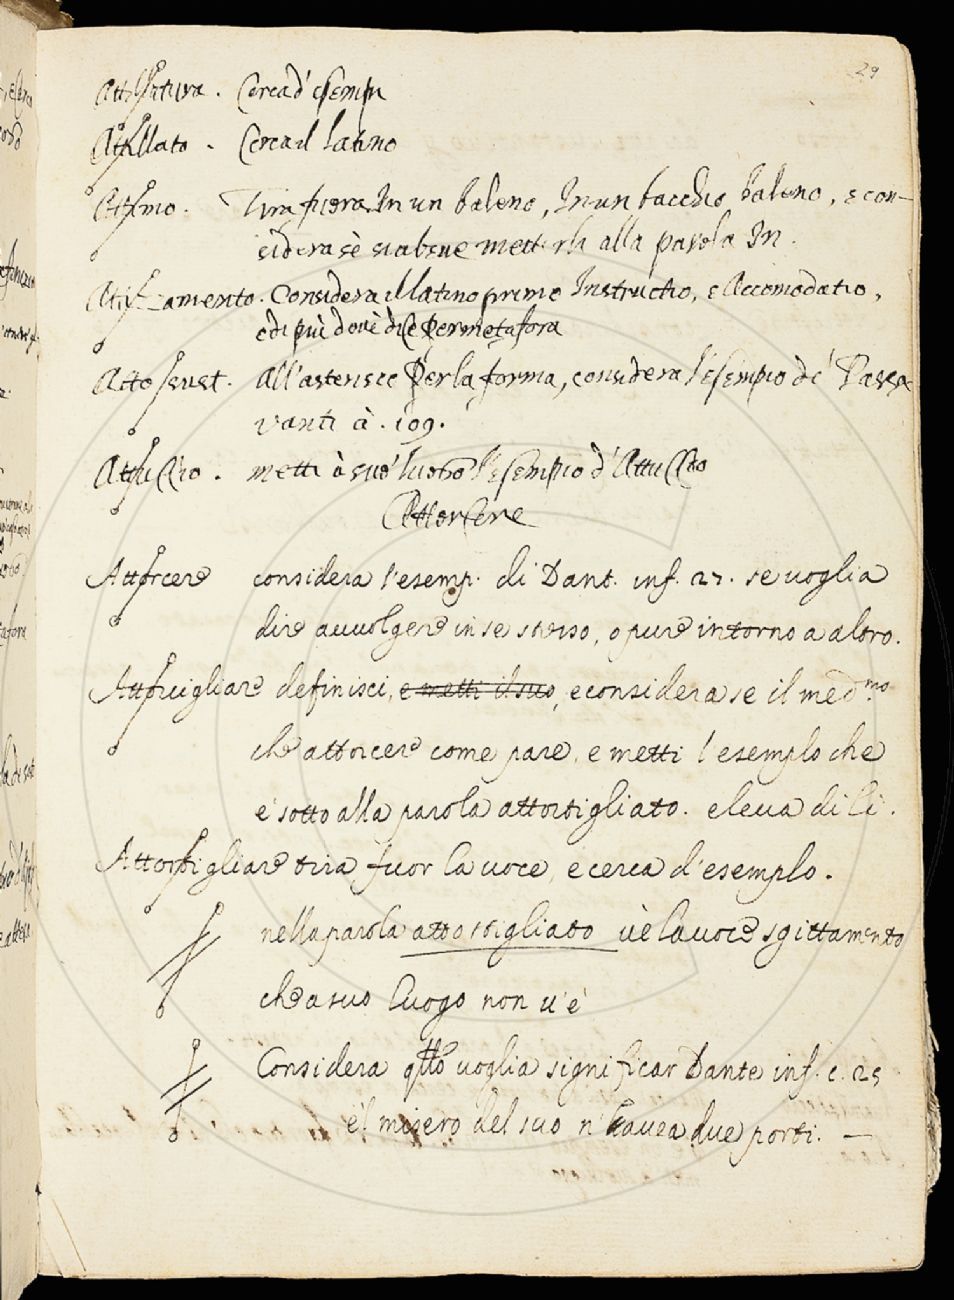 29
Attillatura. Cerca d'esempii
Attillato. Cerca il latino
Attimo. Tira fuora In un baleno, In un bacchio baleno, e con-
sidera sè s'abbia metterli alla parola In.
Attizzamento. Considera il latino primo Instructio, e Accomodatio,
e di più dovè dice per metafora
Atto sust. all'asterisco per la forma, considera l'Esempio de' Passa
vanti à. 109.
Attuffio. metti à suo luogo l'esempio d'Attuffo
Attorcere
Attorcere considera l'esemp. di Dant. inf. 27. se voglia
dire avvolgere in se stesso, o pure intorno a altro.
Attorcigliare definisci, e metti il suo, e considera se il med.mo
che attorcere come pare, e metti l'esemplo che
e' sotto alla parola attortigliato. e leva di lì.
Attortigliare tira fuor la voce, e cerca d'esemplo.
nella parola attortigliato v'è la voce sgittamento
che a suo luogo non v'è
Considera qtto voglia significar Dante inf. c. 25
e'l misero del suo n'havea due porti. —